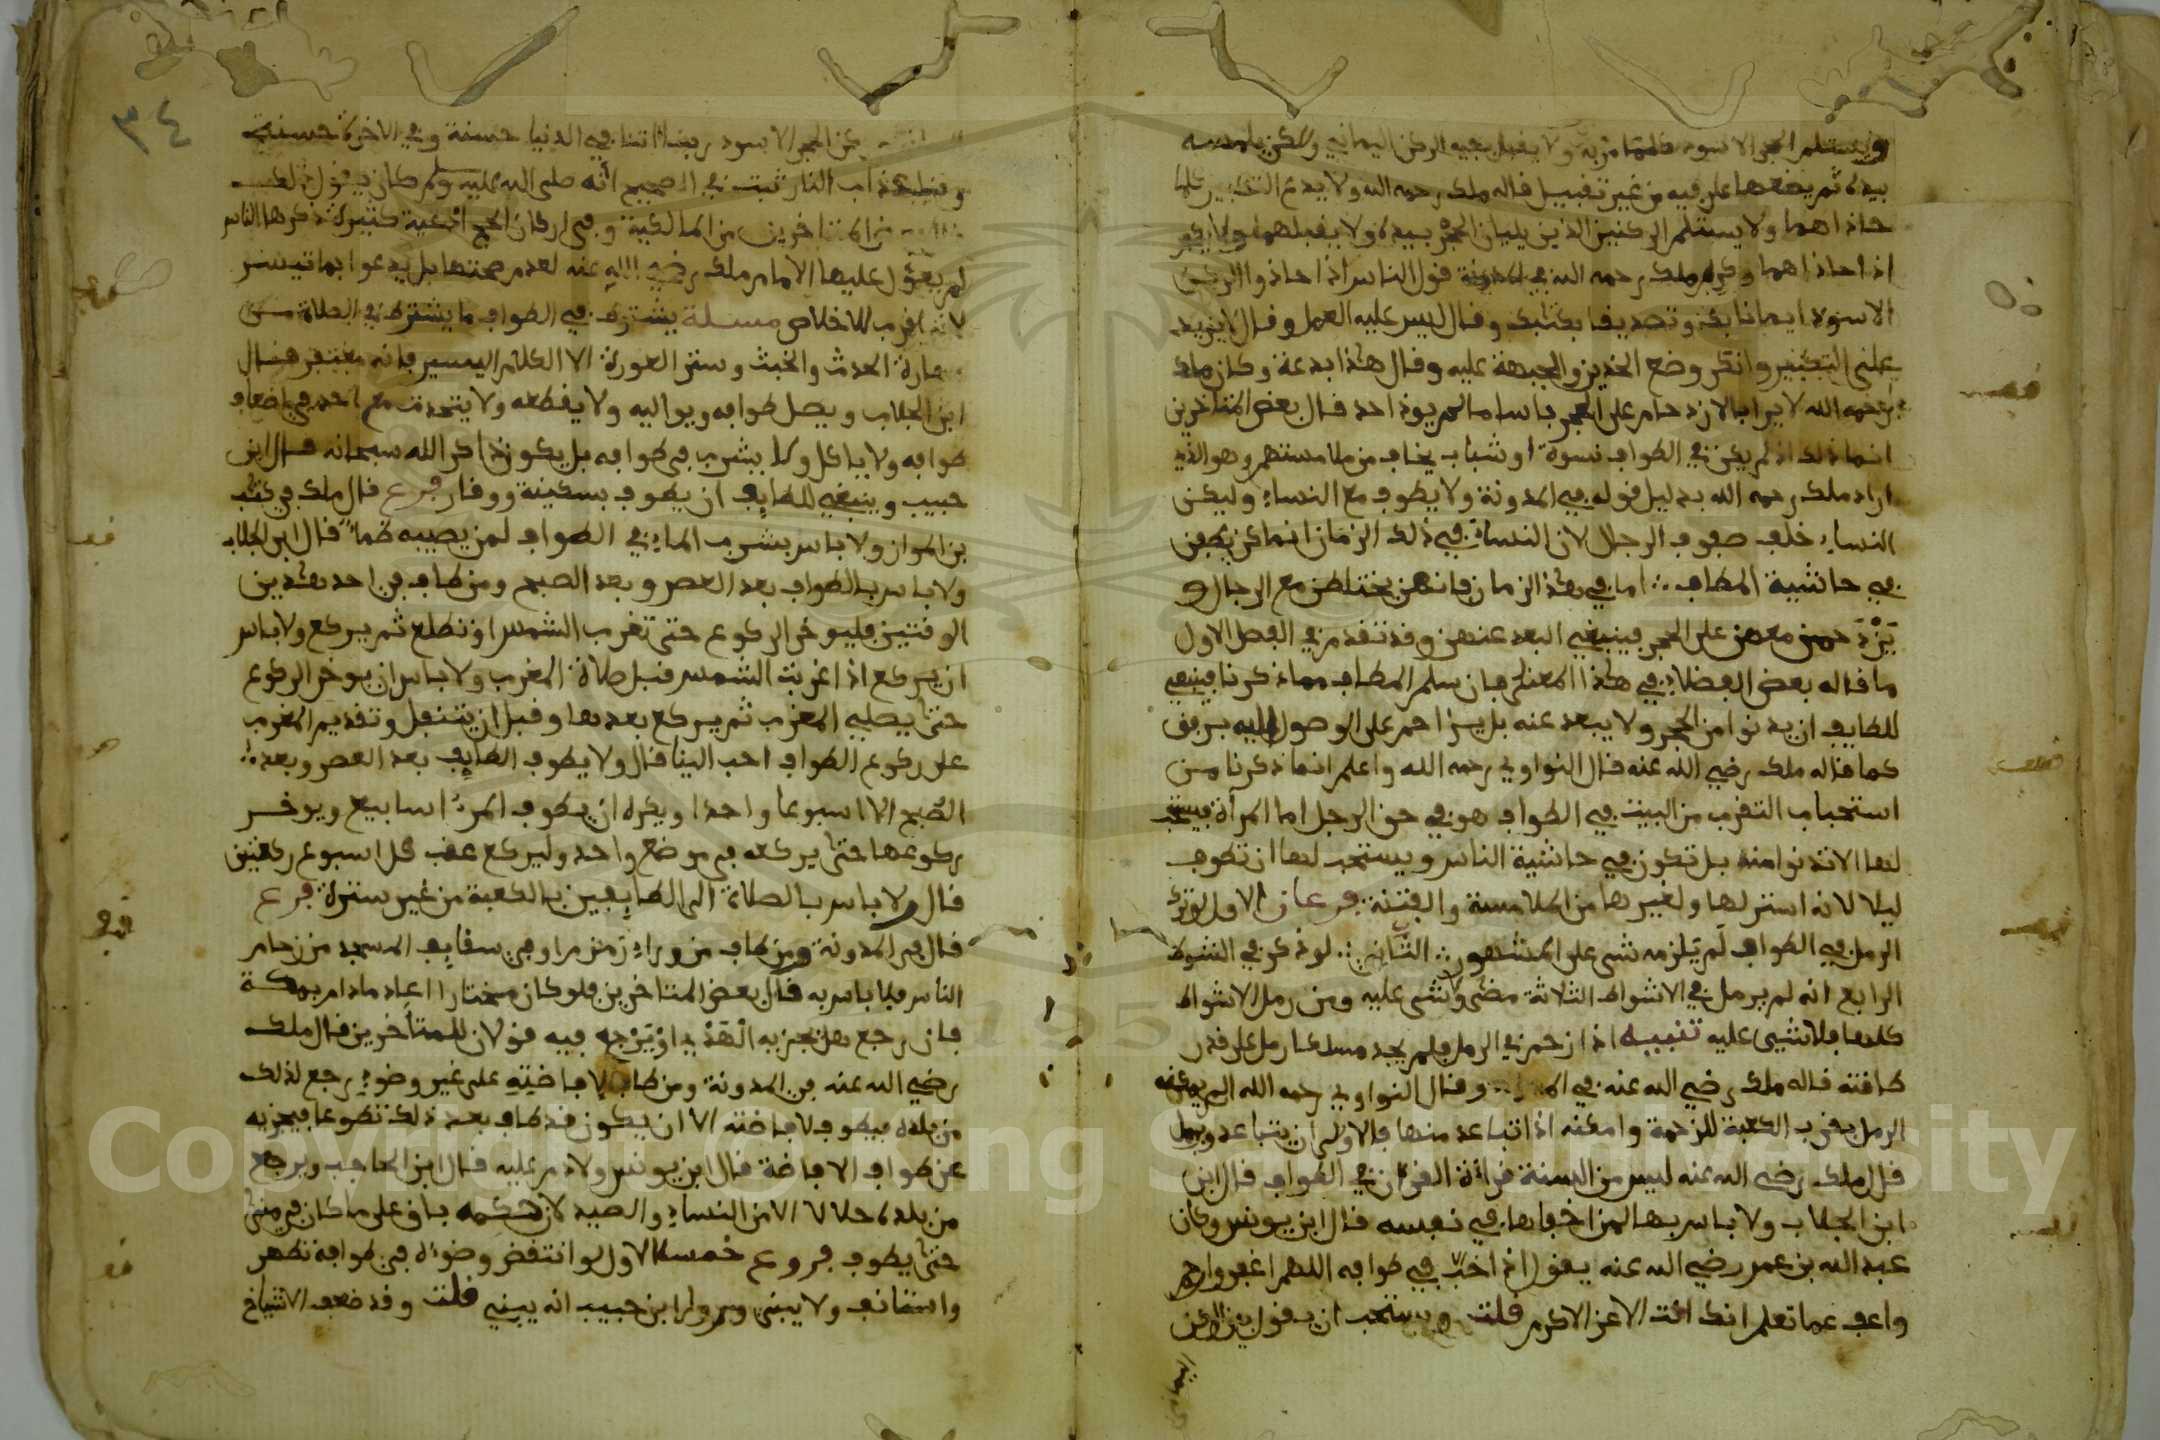 ويستلم الحجر الاسود كلما مر به ولا يقبل بفيه الركن اليماني ولكن يلمسه
بيده ثم يضعها على فيه من غير تقبيل قاله ملك رحمه الله ولا يدع التكبير كلما
حاذاهما ولا يستلم الركنين الذين يليان الحجر بيده ولا يقبلهما ولا يكبر
اذا حاذاهما وكره ملك رحمه الله في المدونة قول الناس اذا حاذوا الركن
الاسود ايمانا بك وتصديفا بكتابك وقال ليس عليه العمل وقال لا يزيد
على التكبير وانكر وضع الخدين والجبهة عليه وقال هذا بدعة وكان ملك
رحمه الله لا يرا بالازدحام على الحجر باسا ما لم يوذ احد قال بعض المتاخرين
انما ذلك اذ لم يكن في الطواف نسوة او شباب يخاف من ملامستهم وهو الذي
اراد ملك رحمه الله بدليل قوله في المدونة ولا يطوف مع النساء وليكن
النساء خلف صفوف الرجال لان النساء في ذلك الزمان انما كن يطفن
في حاشية المطاف اما في هذا الزمان فانهن يختلطن مع الرجال و
يزدحمن معهن على الحجر فينبغي البعد عنهن وقد تقدم في الفصل الاول
ما قاله بعض الفضلاء في هذا المعنى فان سلم المطاف مما ذكرنا فينبغي
للطايف ان يدنوا من الحجر ولا يبعد عنه بل يزاحم على الوصول اليه برفق
كما قاله ملك رضي الله عنه قال النواوي رحمه الله واعلم انما ذكرنا من
استحباب التقرب من البيت في الطواف هو في حق الرجل اما المرأة فيستحب
لها الا تدنوا منه بل تكون في حاشية الناس ويستحب لها ان تطوف
ليلا لانه استر لها ولغيرها من الملامسة والفتنة فرعان الاول لو ترك
الرمل في الطواف لم يلزمه شي على المشهور الثاني لو ذكر في الشوط
الرابع انه لم يرمل في الاشواط الثلاثة مضى ولا شي عليه ومن رمل الاشواط
كلها فلا شي عليه تنبيه اذا زحم في الرمل فلم يجد مسلكا رمل على قدر
طاقته قاله ملك رضي الله عنه في وقال النواوي رحمه الله ان لم يمكنه
الرمل بقرب الكعبة للزحمة وامكنه اذا تباعد منها فالاولى ان يتباعد ويرمل
قال ملك رضي الله عنه ليس من السنة قراءة القرءان في الطواف قال ابن
ابن الجلاب ولا باس بها لمن اخفاها في نفسه قال ابن يونس وكان
عبد الله بن عمر رضي الله عنه يقول اذا خب في طوافه اللهم اغفر وارحم
واعف عما تعلم انك انت الاعز الاكرم قلت ويستحب ان يقول بين الركن
٣٤
الحجر الاسود ربنا اتنا في الدنيا حسنة وفي الاخرة حسنة
وقنا عذاب النار ثبت في الصحيح أنه صلى الله عليه وسلم كان يقول ذلك
من المتاخرين من المالكية وفي اركان الحج ادعية كثيرة ذكرها الناس
لم يعول عليها الامام ملك رضي الله عنه لعدم صحتها بل يدعوا بما تيسر
لانه اقرب للاخلاص مسلة يشترط في الطواف ما يشترط في الصلاة من
طهارة الحدث والخبث وستر العورة الا الكلام اليسير فانه مغتفر قال
ابن الجلاب ويصل طوافه ويواليه ولا يقطعه ولا يتحدث مع احد في اضعاف
طوافه ولا ياكل ولا يشرب في طوافه بل يكون ذاكر الله سبحانه قال ابن
حبيب وينبغي للطايف ان يطوف بسكينة ووقار فرع قال ملك في كتاب
بن المواز ولا باس بشرب الماء في الطواف لمن يصيبه ظمأ قال ابن الجلاب
ولا باس بالطواف بعد العصر وبعد الصبح ومن طاف في احد هذين
الوقتين فليوخر الركوع حتى تغرب الشمس او تطلع ثم يركع ولا باس
ان يركع اذا غربت الشمس قبل صلاة المغرب ولا باس ان يوخر الركوع
حتى يصلي المغرب ثم يركع بعدها وقبل ان يتنفل وتقديم المغرب
على ركوع الطواف احب الينا قال ولا يطوف الطايف بعد العصر وبعد
الصبح الا اسبوعا واحدا ويكره ان يطوف المرء اسابيع ويوخر
ركوعها حتى يركعه في موضع واحد وليركع عقب كل اسبوع ركعتين
قال ولا باس بالصلاة الى الطايفين بالكعبة من غير سترة فرع
قال في المدونة ومن طاف من وراء زمزم او في سقايف المسجد من زحام
الناس فلا باس به قال بعض المتاخرين فلو كان مختارا اعاد مادام بمكة
فان رجع هل يجزيه الهدي او يرجع فيه قولان للمتأخرين قال ملك
رضي الله عنه في المدونة ومن طاف لافاضته على غير وضوء رجع لذلك
من بلده فيطوف لافاضته الا ان يكون قد طاف بعد ذلك تطوعا فيجزيه
عن طواف الافاضة قال ابن يونس ولا دم عليه قال ابن الحاجب ويرجع
من بلده حلالا الا من النساء والصيد لان حكمه باق على ما كان في منى
حتى يطوف فروع خمسة الاول لو انتقض وضوءه في طوافه تطهر
واستانف ولا يبني وروى ابن حبيب انه يبني قلت وقد ضعف الاشياخ